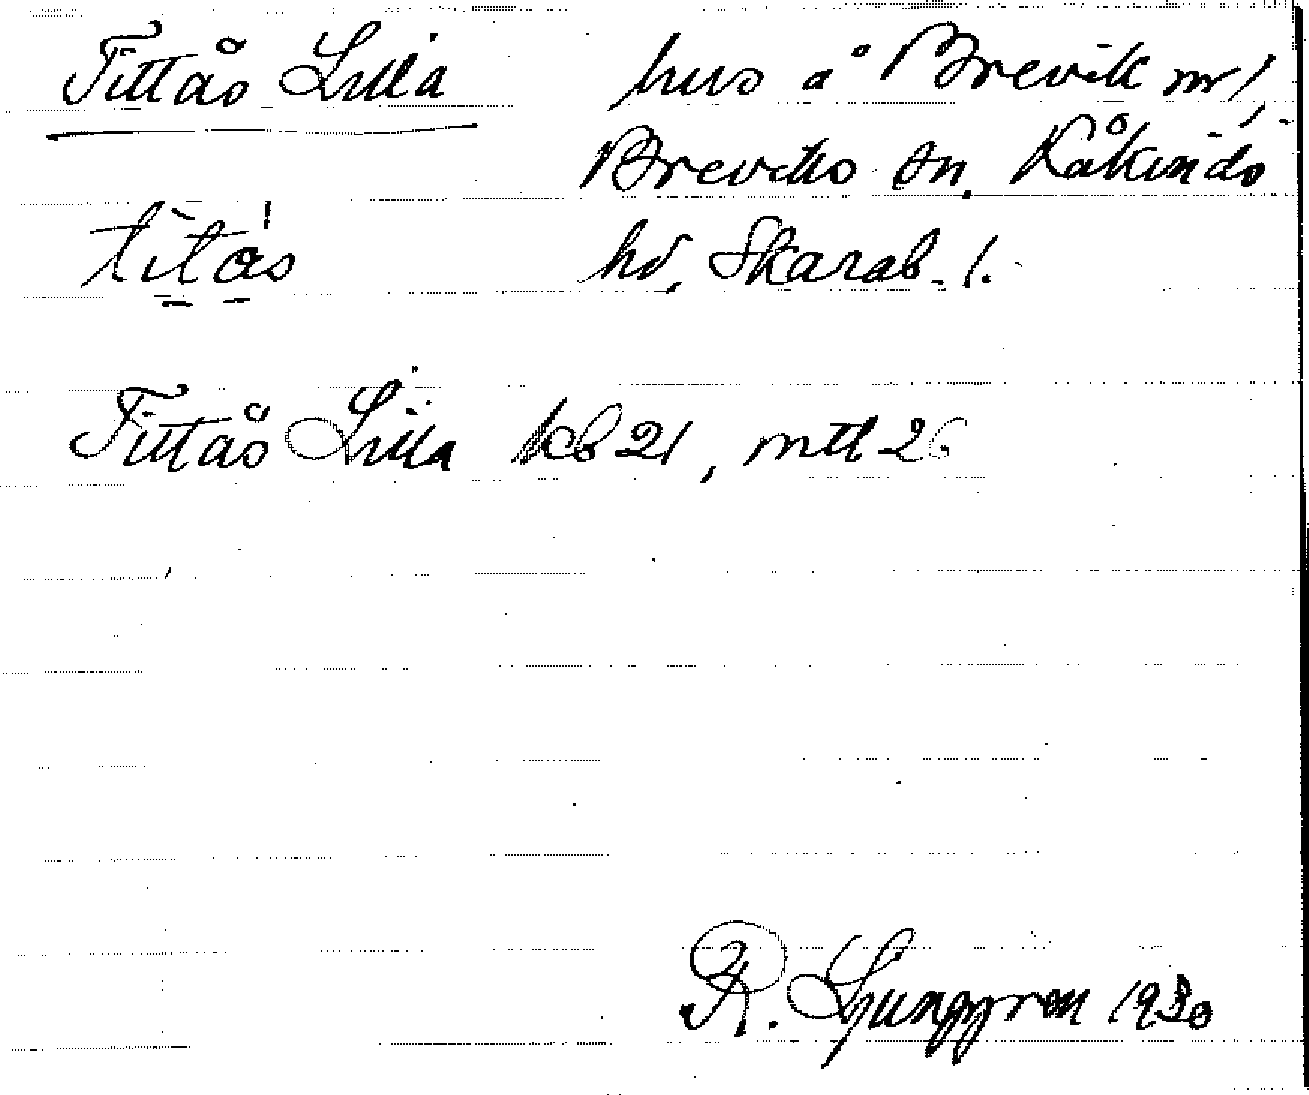 Tittås Lilla hus å Brevik nr 1,
Breviks sn, Kåkinds
titås hd, Skarab. l.
Tittås Lilla kb 21, mtl 26
R. Ljunggren 1930